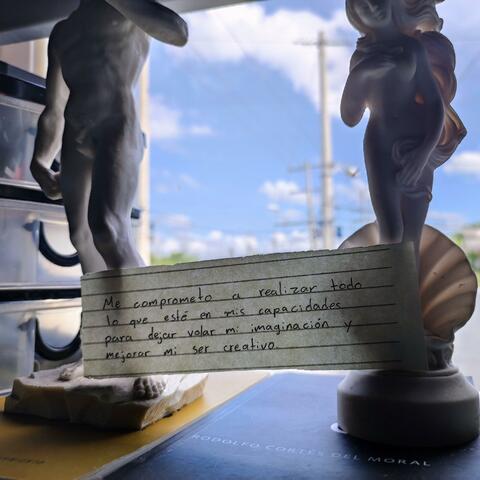 Me comprometo a realizar todo
lo que esté en mis capacidades
para dejar volar mi imaginación y
mejorar mi ser creativo
RODOLFO CORTÉS DEL MORAL